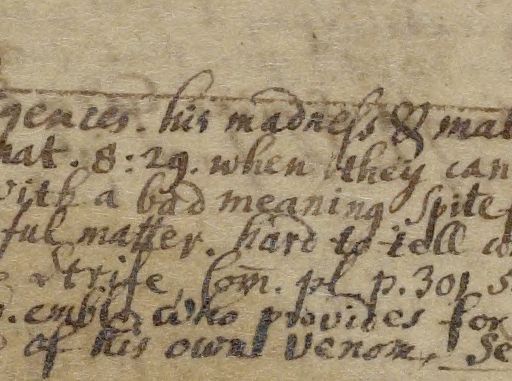 gences. his madness & mal
mat. 8:29. when they can
with a bad meaning spite
ful matter. hard to tell
& strife, Com. pl p. 301
embl; who provides for
of his own venom, Se